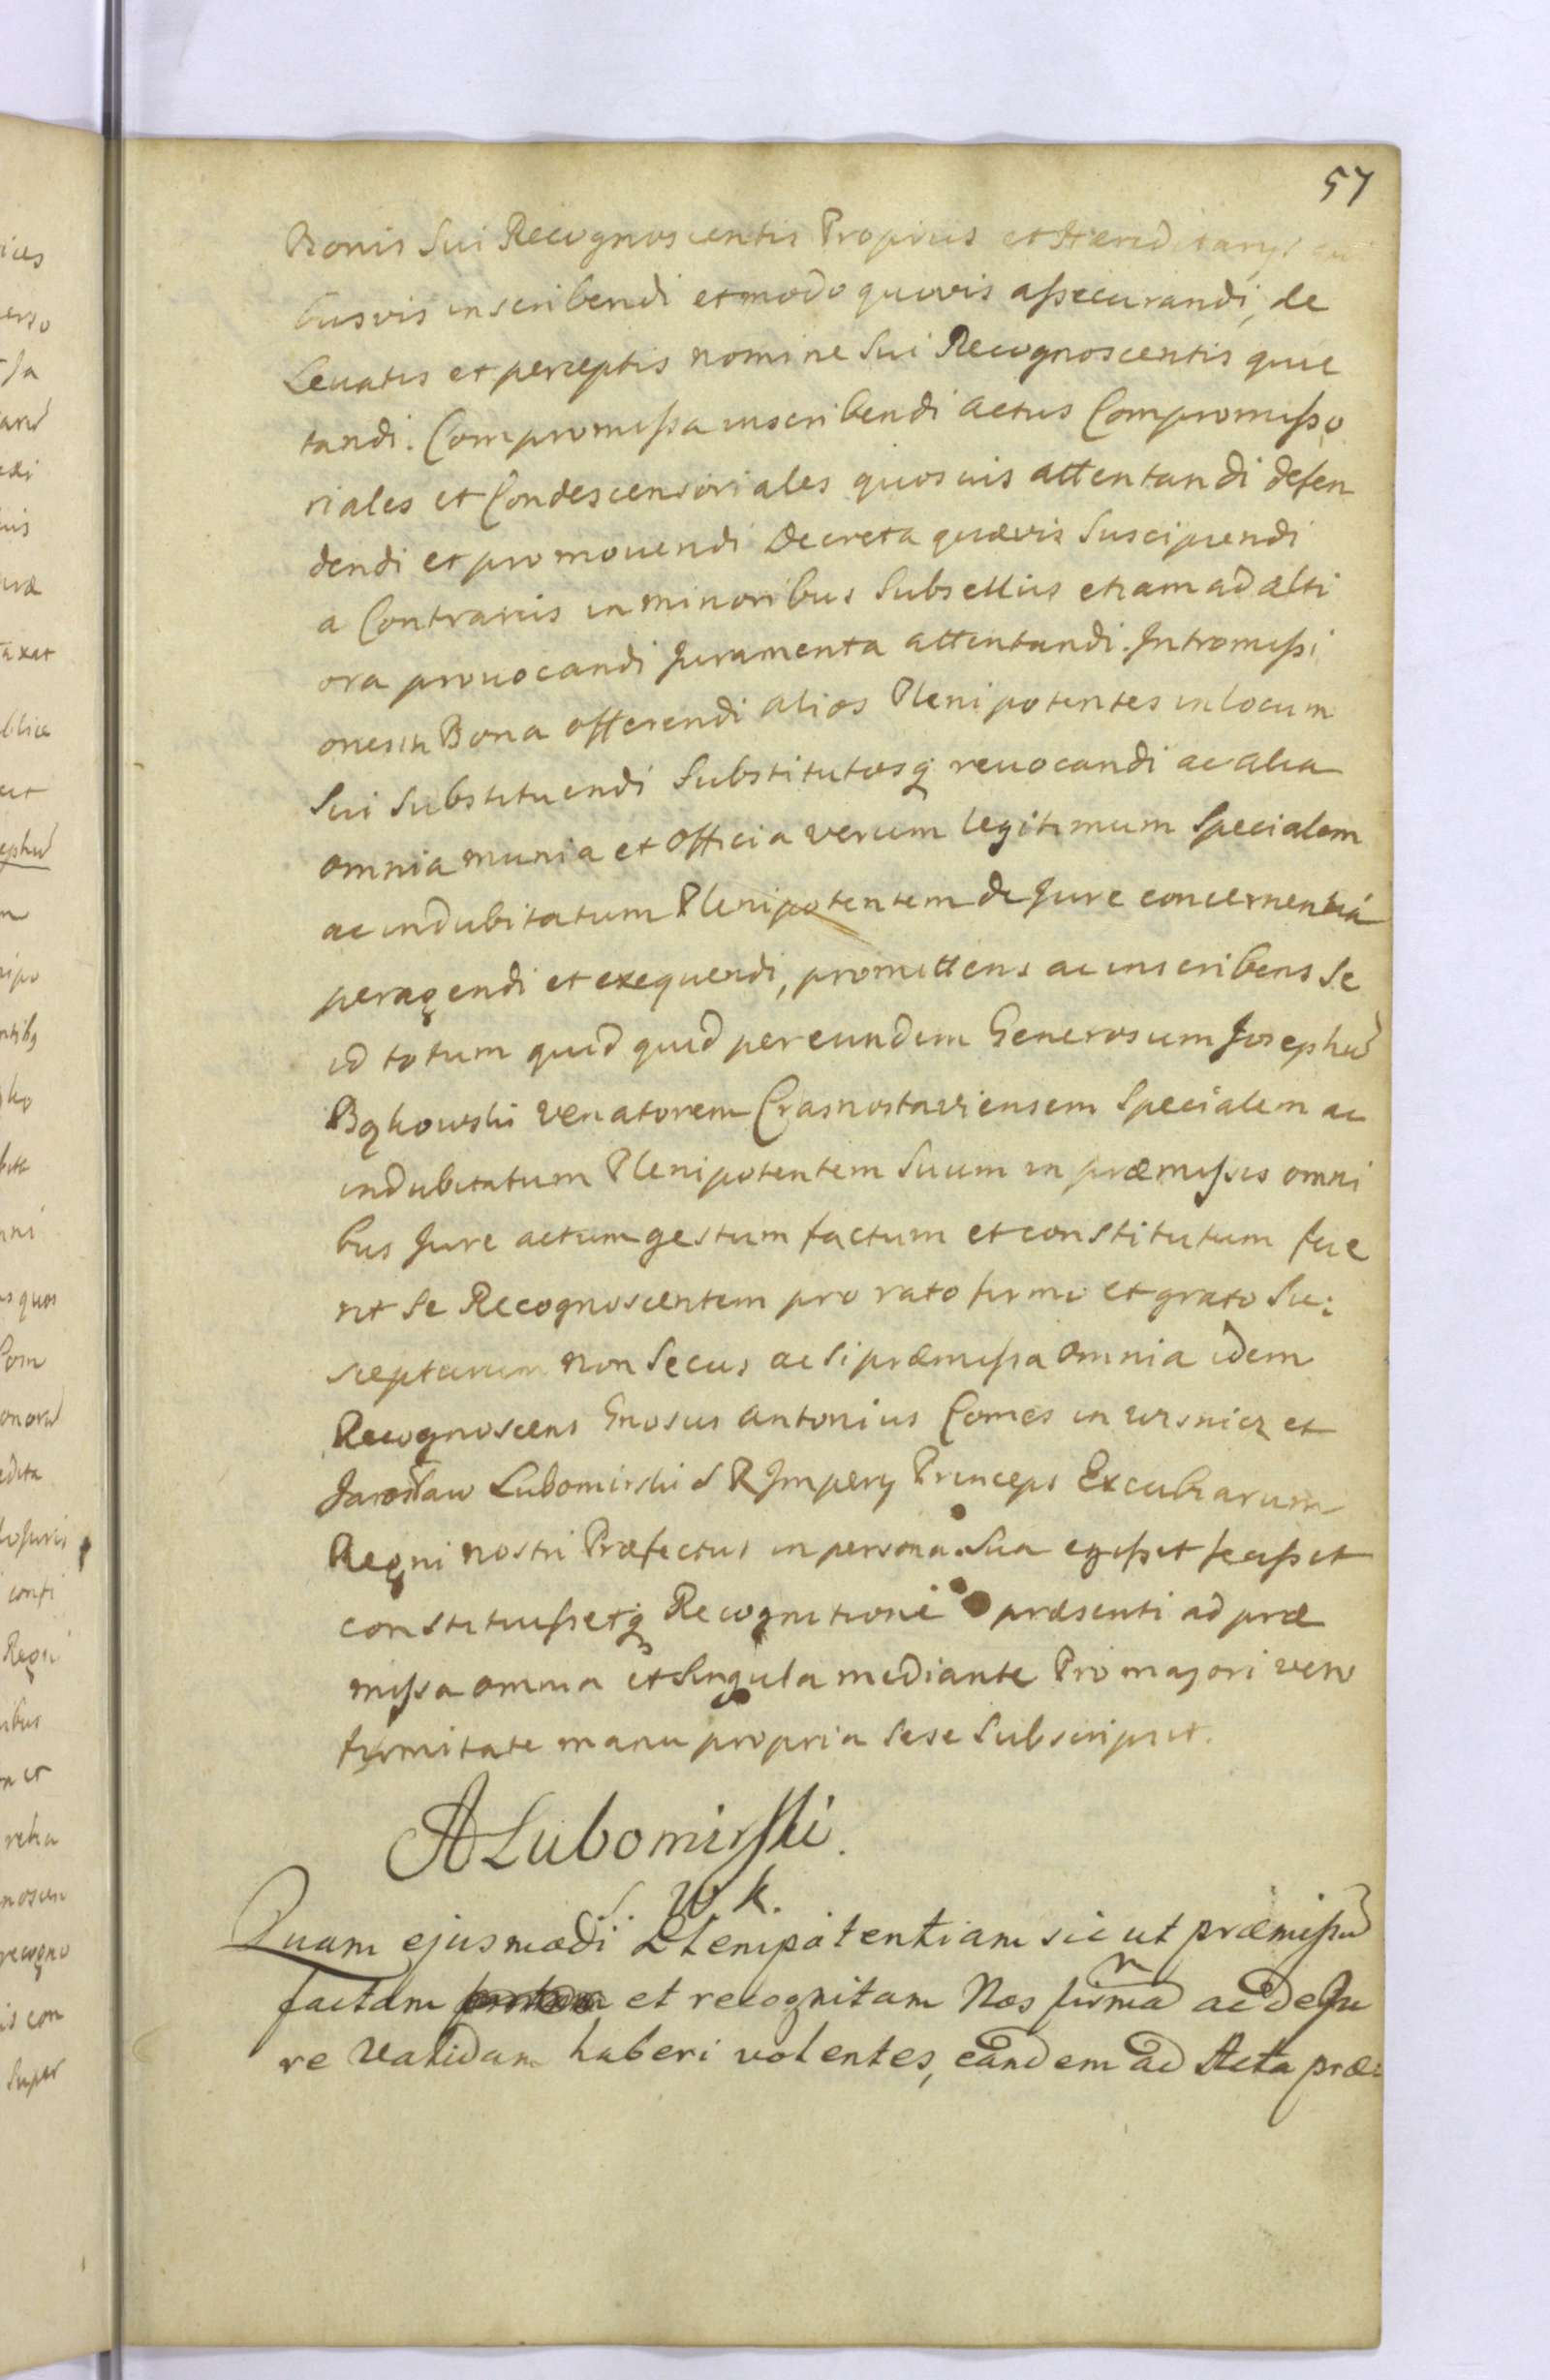 57
Bonis Sui Recognoscentis Propriis et Hæreditarys qui
busvis inscribendi et modo quovis assecurandi, de
Levatis et perceptis nomine Sui Recognoscentis quie
tandi. Compromissa inscribendi actus Compromisso
riales et Condescensoriales quosuis attentandi defen
dendi et promouendi Decreta quævis Suscipiendi
a Contrariis in minoribus Subselliis etiam ad alti
ora prouocandi Juramenta attentandi. Intromissi
ones in Bona offerendi alios Plenipotentes in locum
Sui Substituendi Substitutosq revocandi ac alia
omnia munia et officia verum legitimum Specialem
ac indubitatum Plenipotentem de Jure concernentia
peragendi et exequendi, promittens ac inscribens Se
id totum quid quid per eundem Generosum Josephū
Bąkowski Venatorem Crasnostaviensem Specialem ac
indubitatum Plenipotentem Suum in præmissis omni
bus Jure actum gestum factum et constitutum fue
rit Se Recognoscentem pro rato firmo et grato Su:
scepturum non Secus ac Si præmissa omnia idem
Recognoscens Gnosus Antonius Comes in Wisnicz et
Jarosław Lubomirski S R Impery Princeps Excubiarum
Regni nostri Præfectus in persona Sua egisset fecisset
constituissetq Recognitione præsenti ad præ
missa omnia et Singula mediante Pro majori vero
firmitate manu propria Sese Subscripsit.
A Lubomirski.
S. W k.
Quam ejusmodi Plenipotentiam sic ut præmissū
factam et recognitam Nos firmā ac de Ju
re Validam haberi volentes, eandem ad Acta præ: